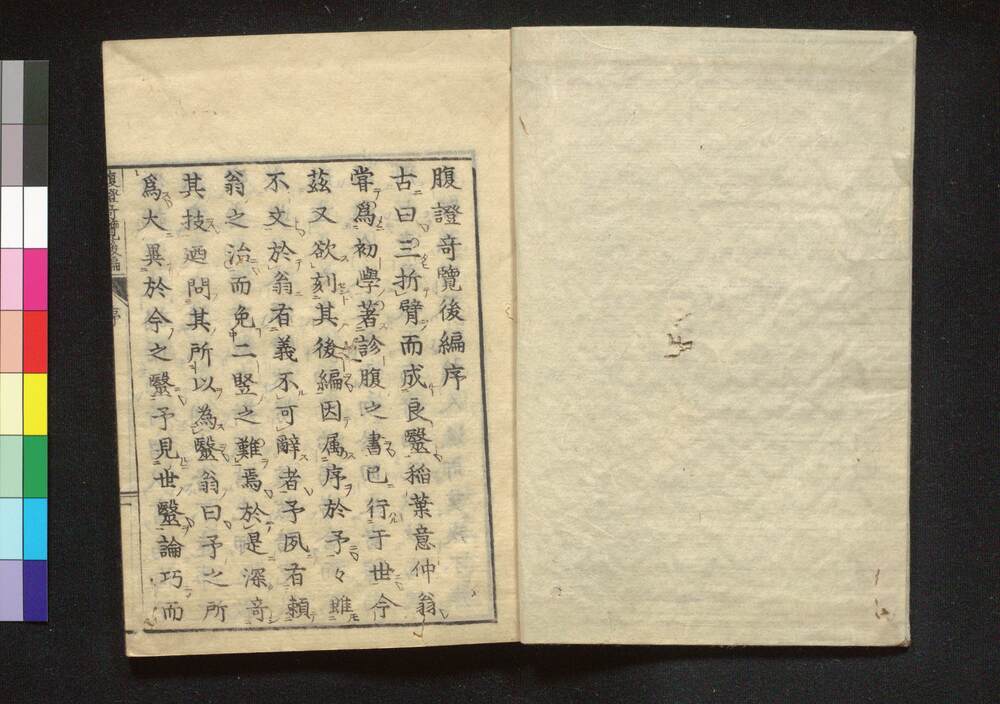 腹證奇覽後編序
古曰三折臂而成良毉稲葉意仲翁
甞爲初學著診腹之書已行于世今
茲又欲刻其後編因属序於予々雖
不文於翁有義不可辭者予夙有賴
翁之治而免二竪之難焉於是深奇
其技迺問其所以為毉翁曰予之所
爲大異於今之毉予見世毉論巧而
腹證奇覽後編
序